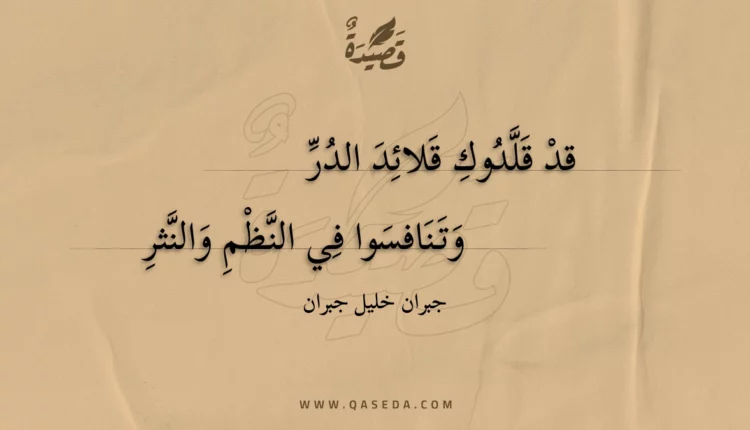 قَصِيْدَةٌ
قدْ قَلَّدُوكِ قَلائِدَ الدُرِّ
وَتَنَافسَوا فِي النَّظْمِ وَالنَّثرِ
جبران خليل جبران
WWW.QASEDA.COM